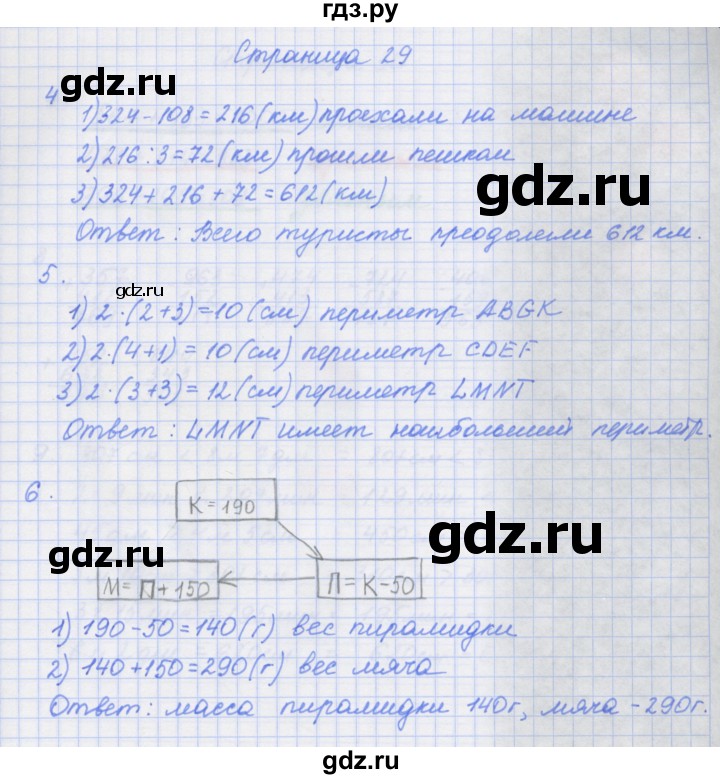 гдз.ру
Страница 29
gdz.ru gdz.ru
4
1) 324 - 108 = 216 (км) проехали на машине
2) 216 : 3 = 72 (км) прошли пешком
gdz.ru
3) 324 + 216 + 72 = 612 (км)
Ответ: Всего туристы преодолели 612 км.
5.
gdz.ru
1) 2 · (2 + 3) = 10 (см) периметр ABGK
2) 2 · (4 + 1) = 10 (см) периметр CDEF
3) 2 · (3 + 3) = 12 (см) периметр LMNT
Ответ: LMNT имеет наибольший периметр.
6.
К = 190
gdz.ru gdz.ru
М = П + 150 П = К - 50
1) 190 - 50 = 140 (г) вес пирамидки
2) 140 + 150 = 290 (г) вес мяча
Ответ: масса пирамидки 140 г, мяча - 290 г.
gdz.ru